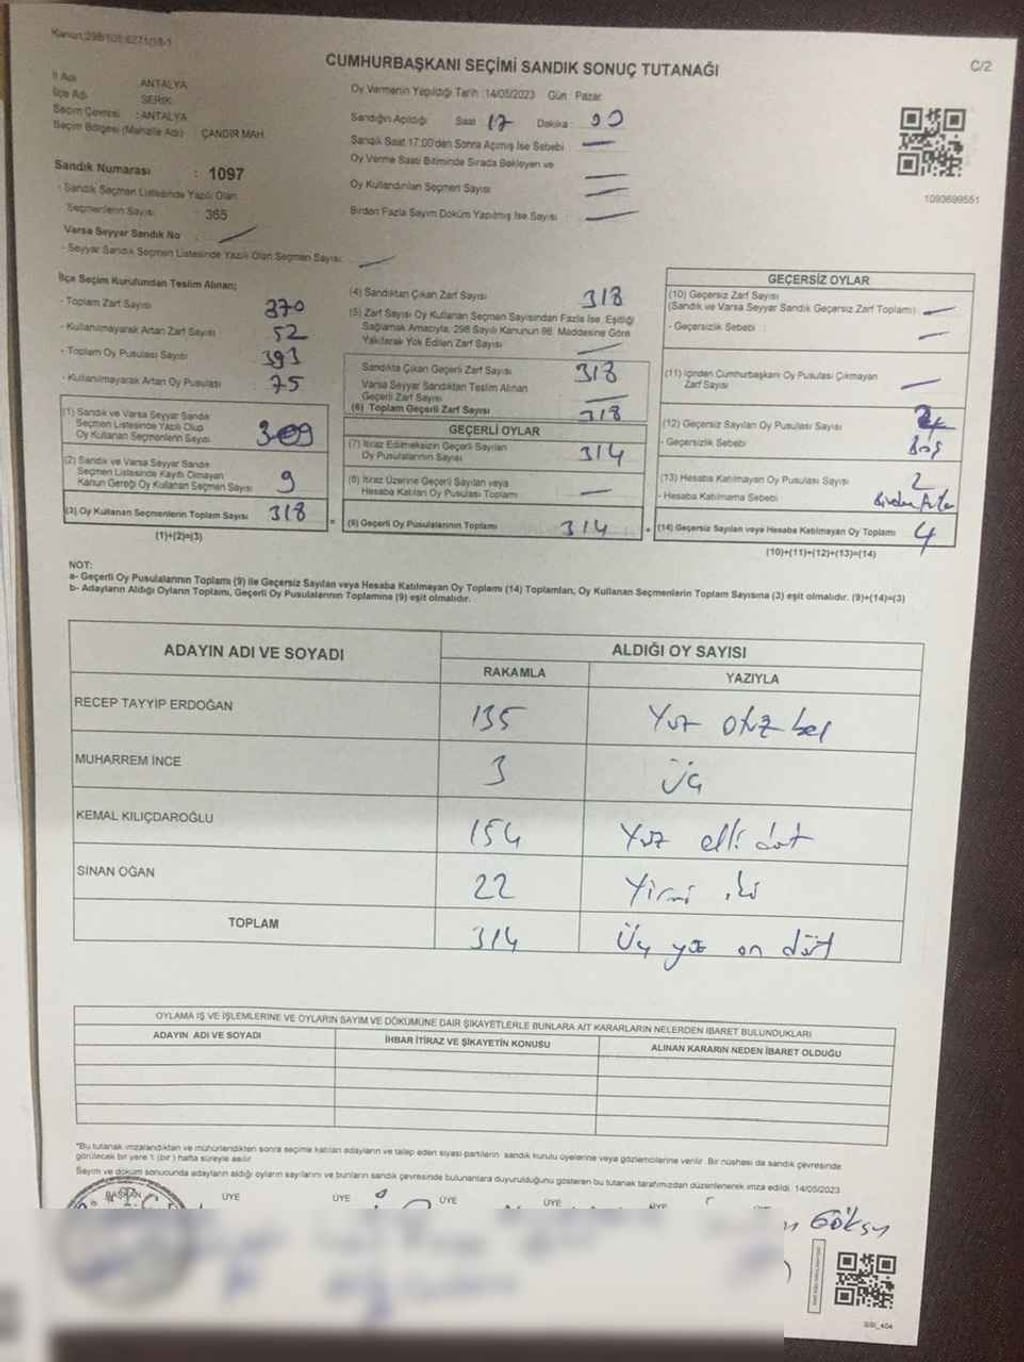 Kanun:298/105;6271/18-1
CUMHURBAŞKANI SEÇİMİ SANDIK SONUÇ TUTANAĞI
C/2
İl Adı ANTALYA
İlçe Adı SERİK
Seçim Çevresi : ANTALYA
Seçim Bölgesi (Mahalle Adı) ÇANDIR MAH.
Sandık Numarası : 1097
- Sandık Seçmen Listesinde Yazılı Olan
Seçmenlerin Sayısı : 365
Varsa Seyyar Sandık No :
- Seyyar Sandık Seçmen Listesinde Yazılı Olan Seçmen Sayısı:
Oy Vermenin Yapıldığı Tarih :14/05/2023 Gün : Pazar
Sandığın Açıldığı Saat 17 Dakika : 00
Sandık Saat 17:00'den Sonra Açımış İse Sebebi :
Oy Verme Saati Bitiminde Sırada Bekleyen ve
Oy Kullandırılan Seçmen Sayısı
Birden Fazla Sayım Döküm Yapılmış İse Sayısı :
1093699551
İlçe Seçim Kurulundan Teslim Alınan;
- Toplam Zarf Sayısı 370
- Kullanılmayarak Artan Zarf Sayısı : 52
- Toplam Oy Pusulası Sayısı 393
- Kullanılmayarak Artan Oy Pusulası : 75
(1) Sandık ve Varsa Seyyar Sandık
Seçmen Listesinde Yazılı Olup
Oy Kullanan Seçmenlerin Sayısı 309
(2) Sandık ve Varsa Seyyar Sandık
Seçmen Listesinde Kayıtlı Olmayan
Kanun Gereği Oy Kullanan Seçmen Sayısı 9
(3) Oy Kullanan Seçmenlerin Toplam Sayısı 318
(1)+(2)=(3)
(4) Sandıktan Çıkan Zarf Sayısı 318
(5) Zarf Sayısı Oy Kullanan Seçmen Sayısından Fazla İse, Eşitliği
Sağlamak Amacıyla, 298 Sayılı Kanunun 98. Maddesine Göre
Yakılarak Yok Edilen Zarf Sayısı
Sandıkta Çıkan Geçerli Zarf Sayısı 318
Varsa Seyyar Sandıktan Teslim Alınan
Geçerli Zarf Sayısı
(6) Toplam Geçerli Zarf Sayısı 318
GEÇERLİ OYLAR
(7) İtiraz Edilmeksizin Geçerli Sayılan
Oy Pusulalarının Sayısı 314
(8) İtiraz Üzerine Geçerli Sayılan veya
Hesaba Katılan Oy Pusulası Toplamı
(9) Geçerli Oy Pusulalarının Toplamı 314
GEÇERSİZ OYLAR
(10) Geçersiz Zarf Sayısı
(Sandık ve Varsa Seyyar Sandık Geçersiz Zarf Toplamı)
- Geçersizlik Sebebi :
(11) İçinden Cumhurbaşkanı Oy Pusulası Çıkmayan
Zarf Sayısı
(12) Geçersiz Sayılan Oy Pusulası Sayısı
- Geçersizlik Sebebi Boş
(13) Hesaba Katılmayan Oy Pusulası Sayısı 2
- Hesaba Katılmama Sebebi
(14) Geçersiz Sayılan veya Hesaba Katılmayan Oy Toplamı 4
(10)+(11)+(12)+(13)=(14)
NOT:
a- Geçerli Oy Pusulalarının Toplamı (9) ile Geçersiz Sayılan veya Hesaba Katılmayan Oy Toplamı (14) Toplamları, Oy Kullanan Seçmenlerin Toplam Sayısına (3) eşit olmalıdır. (9)+(14)=(3)
b- Adayların Aldığı Oyların Toplamı, Geçerli Oy Pusulalarının Toplamına (9) eşit olmalıdır.
ADAYIN ADI VE SOYADI ALDIĞI OY SAYISI
RAKAMLA YAZIYLA
RECEP TAYYİP ERDOĞAN 135 Yüz otuz beş
MUHARREM İNCE 3 Üç
KEMAL KILIÇDAROĞLU 154 Yüz elli dört
SİNAN OĞAN 22 Yirmi iki
TOPLAM 314 Üç yüz on dört
OYLAMA İŞ VE İŞLEMLERİNE VE OYLARIN SAYIM VE DÖKÜMÜNE DAİR ŞİKAYETLERLE BUNLARA AİT KARARLARIN NELERDEN İBARET BULUNDUKLARI
ADAYIN ADI VE SOYADI İHBAR İTİRAZ VE ŞİKAYETİN KONUSU ALINAN KARARIN NEDEN İBARET OLDUĞU
*Bu tutanak imzalandıktan ve mühürlendikten sonra seçime katılan adayların ve talep eden siyasi partilerin sandık kurulu üyelerine veya gözlemcilerine verilir. Bir nüshası da sandık çevresinde
görülecek bir yere 1 (bir) hafta süreyle asılır.
Sayım ve döküm sonucunda adayların aldığı oyların sayılarını ve bunların sandık çevresinde bulunanlara duyurulduğunu gösteren bu tutanak tarafımızdan düzenlenerek imza edildi. 14/05/2023
BAŞKAN ÜYE ÜYE ÜYE ÜYE ÜYE
Göksu